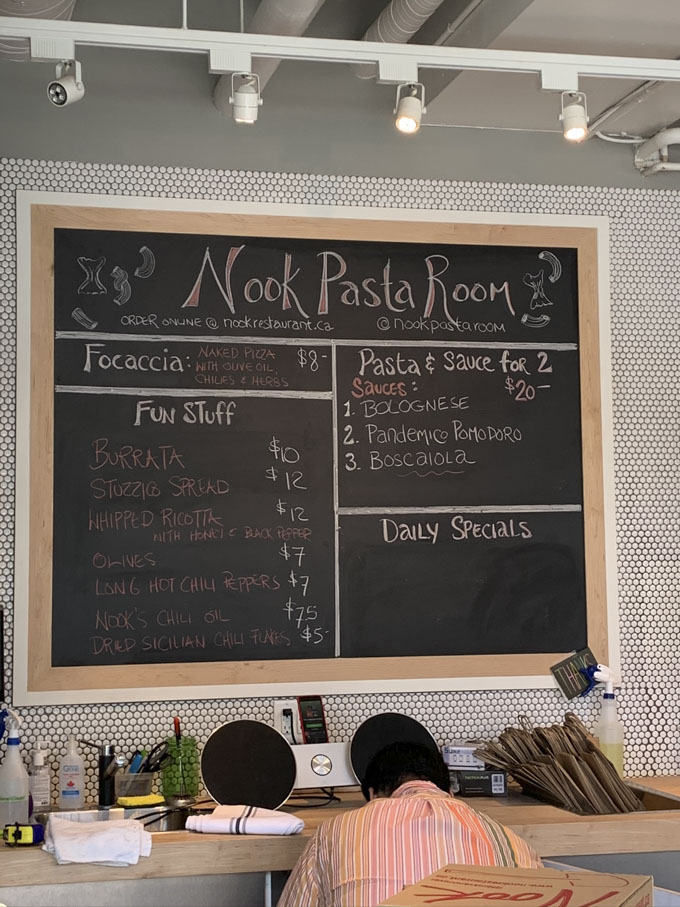 Nook Pasta Room
ORDER ONLINE @ nookrestaurant.ca
@nookpastaroom
Focaccia: NAKED PIZZA $8-
WITH OLIVE OIL,
CHILIES & HERBS
FUN STUFF
BURRATA $10
STUZZICO SPREAD $12
WHIPPED RICOTTA $12
WITH HONEY & BLACK PEPPER
OLIVES $7
LONG HOT CHILI PEPPERS $7
NOOK'S CHILI OIL $7.5
DRIED SICILIAN CHILI FLAKES $5-
Pasta & Sauce for 2
SAUCES: $20-
1. BOLOGNESE
2. Pandemico Pomodoro
3. Boscaiola
Daily Specials
THANKS
Nook